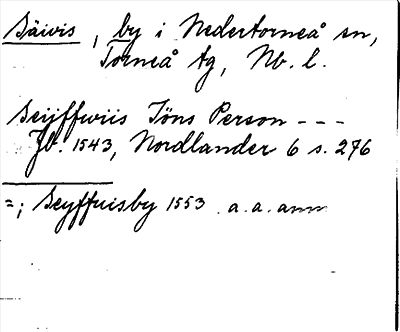 Säivis, by i Nedertorneå sn,
Torneå tg, Nb. l.
Seijffwiis Jöns Person - - -
Jb. 1543, Nordlander 6 s. 276
=; Seyffuisby 1553 a.a. anm